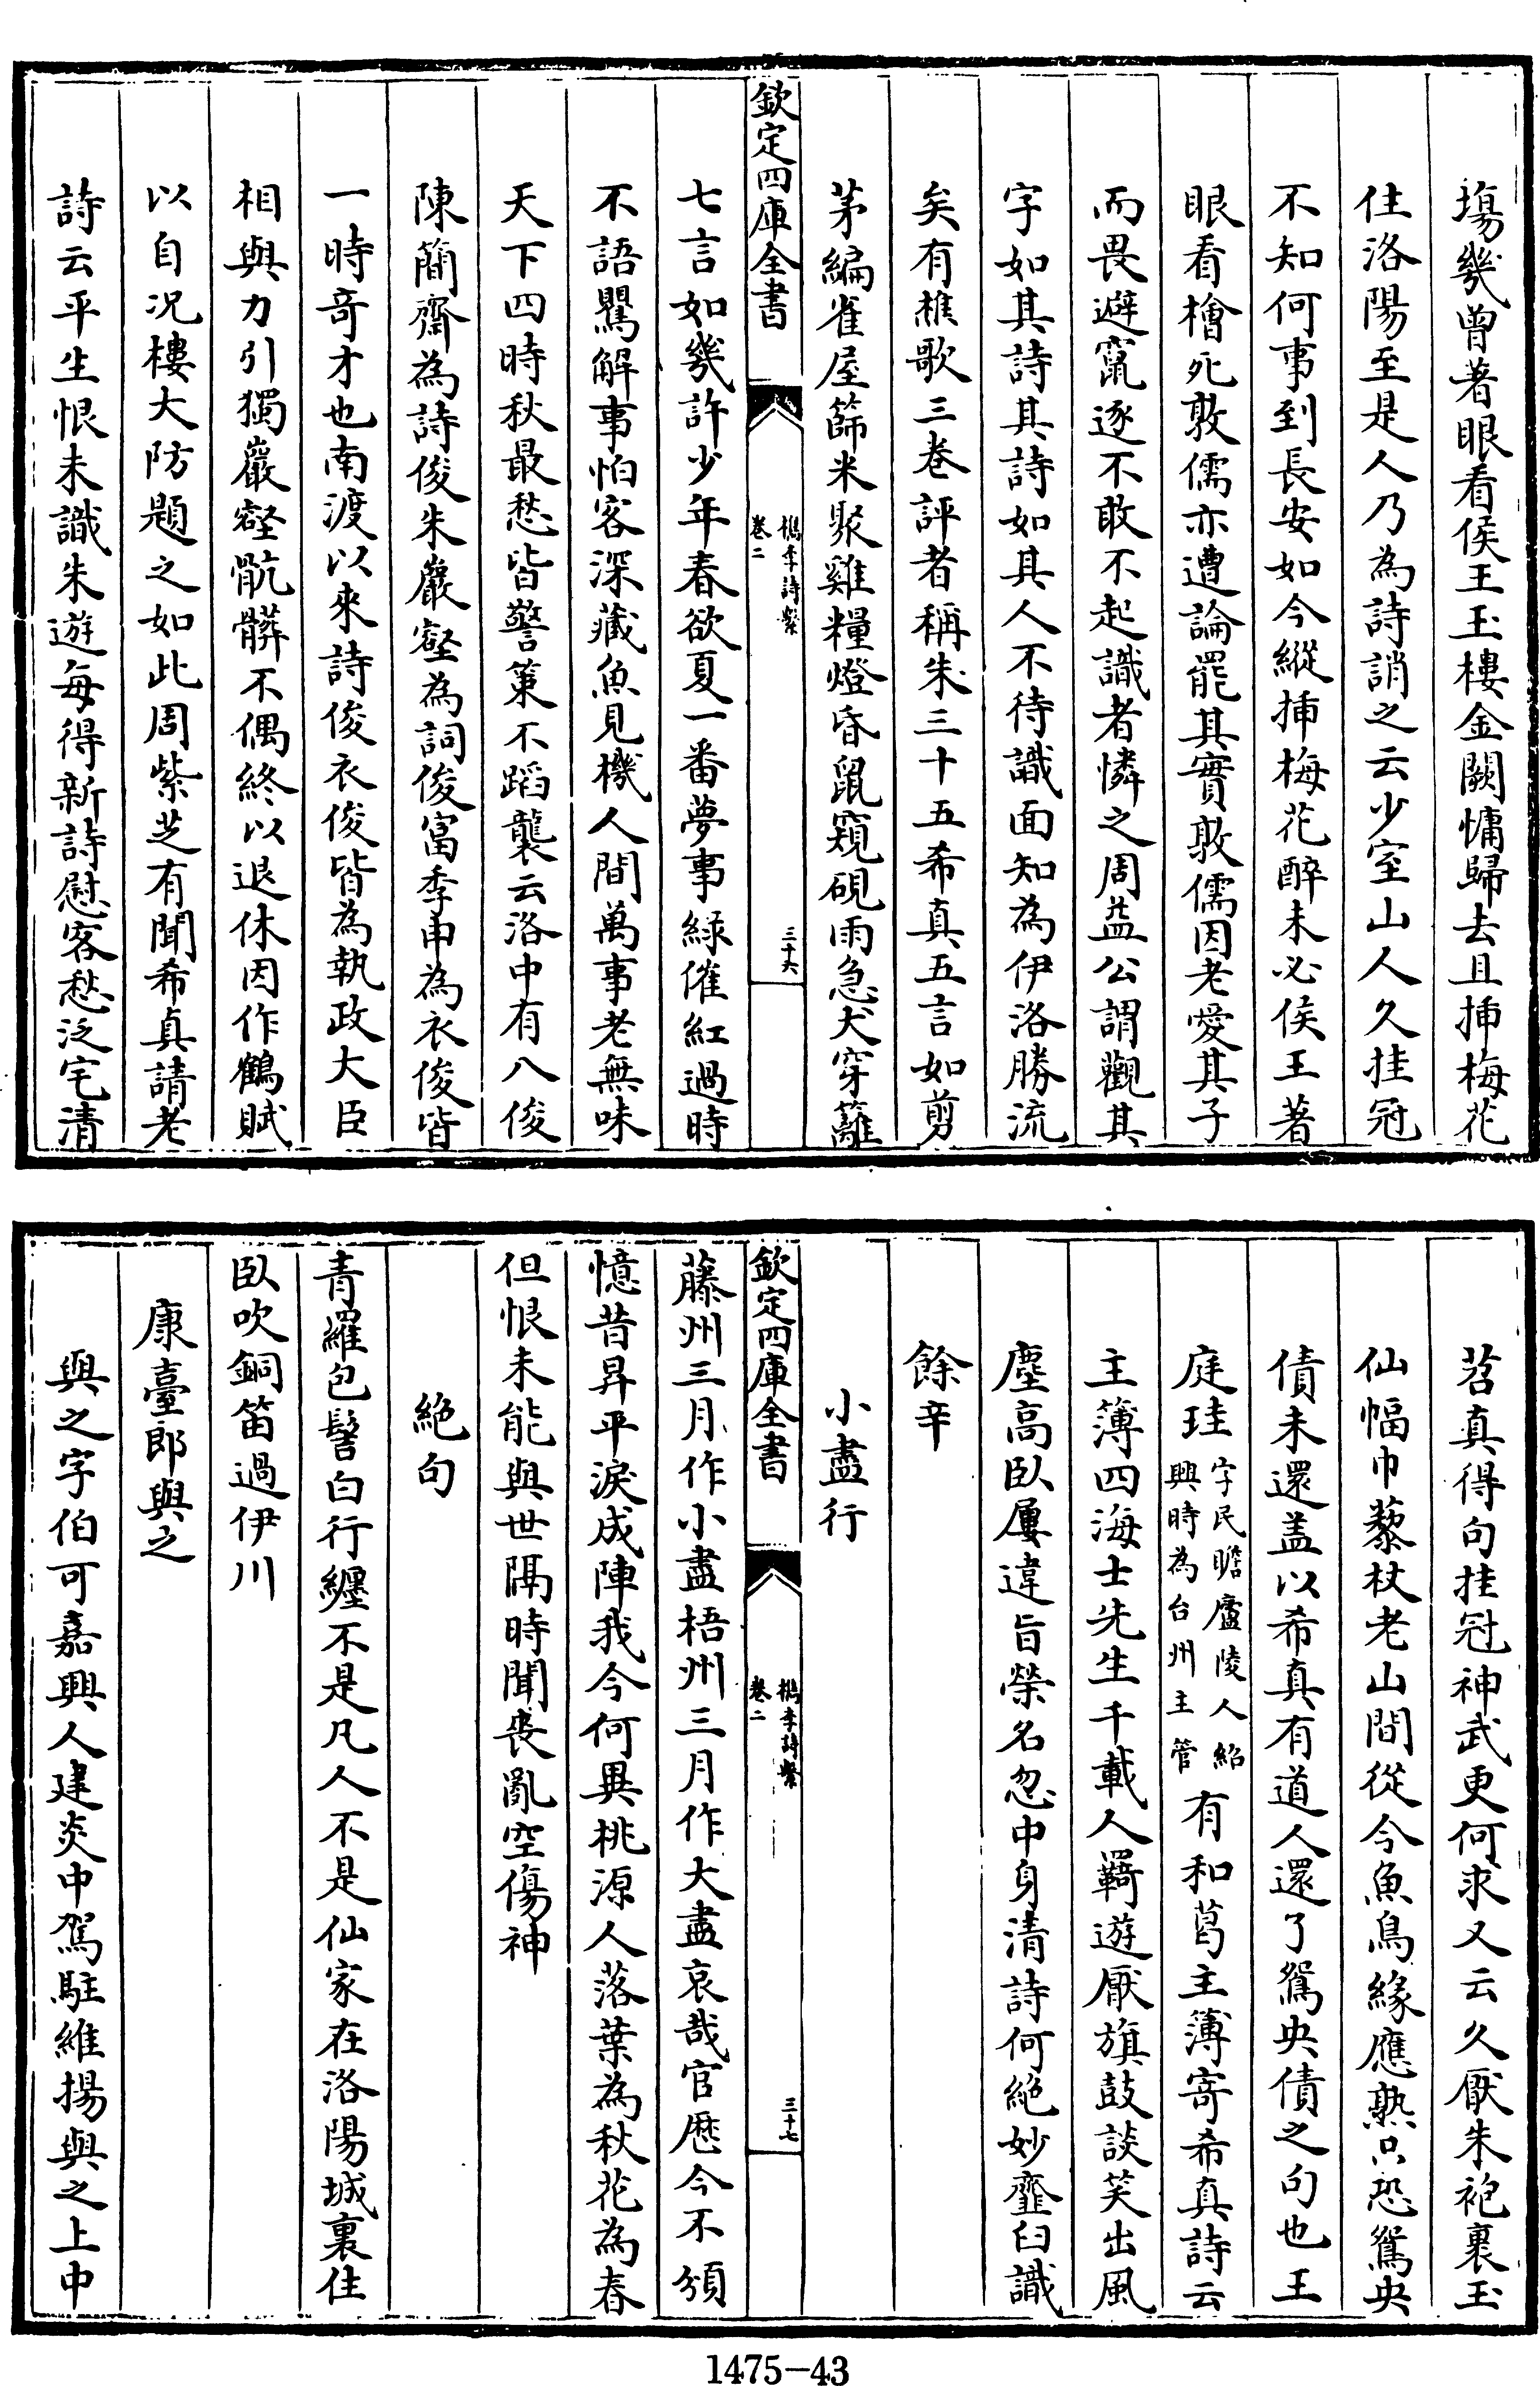 塲幾曾著眼看侯王玉樓金闕慵歸去且揷梅花
住洛陽至是人乃為詩誚之云少室山人久挂冠
不知何事到長安如今縱揷梅花醉未必侯王著
眼看檜死敦儒亦遭論罷其實敦儒因老愛其子
而畏避竄逐不敢不起識者憐之周益公謂觀其
字如其詩其詩如其人不待識面知為伊洛勝流
矣有樵歌三巻評者稱朱三十五希真五言如剪
茅編雀屋篩米聚雞糧燈昏鼠窺硯雨急犬穿籬
欽定四庫全書
檇李詩繫
巻二
三十六
七言如幾許少年春欲夏一番夢事緑催紅過時
不語鸎解事怕客深藏魚見機人間萬事老無味
天下四時秋最愁皆警䇿不蹈襲云洛中有八俊
陳簡齋為詩俊朱巖壑為詞俊富季申為衣俊皆
一時竒才也南渡以來詩俊衣俊皆為執政大臣
相與力引獨巖壑骯髒不偶終以退休因作鶴賦
以自况樓大防題之如此周紫芝有聞希真請老
詩云平生恨未識朱遊每得新詩慰客愁泛宅清
苕真得句挂冠神武更何求又云久厭朱袍裹玉
仙幅巾藜杖老山間從今魚鳥緣應熟只恐鴛央
債未還盖以希真有道人還了鴛央債之句也王
庭珪字民瞻廬陵人紹興時為台州主管有和葛主簿寄希真詩云
主簿四海士先生千載人羇遊厭旗鼓談笑出風
塵高臥屢違旨榮名忽中身清詩何絶妙虀臼識
餘辛
小盡行
欽定四庫全書
檇李詩繫
巻二
三十七
藤州三月作小盡梧州三月作大盡哀哉官厯今不頒
憶昔昇平淚成陣我今何異桃源人落葉為秋花為春
但恨未能與世隔時聞喪亂空傷神
絶句
青羅包髻白行纏不是凡人不是仙家在洛陽城裏住
臥吹銅笛過伊川
康臺郎與之
與之字伯可嘉興人建炎中駕駐維揚與之上中
1475-43